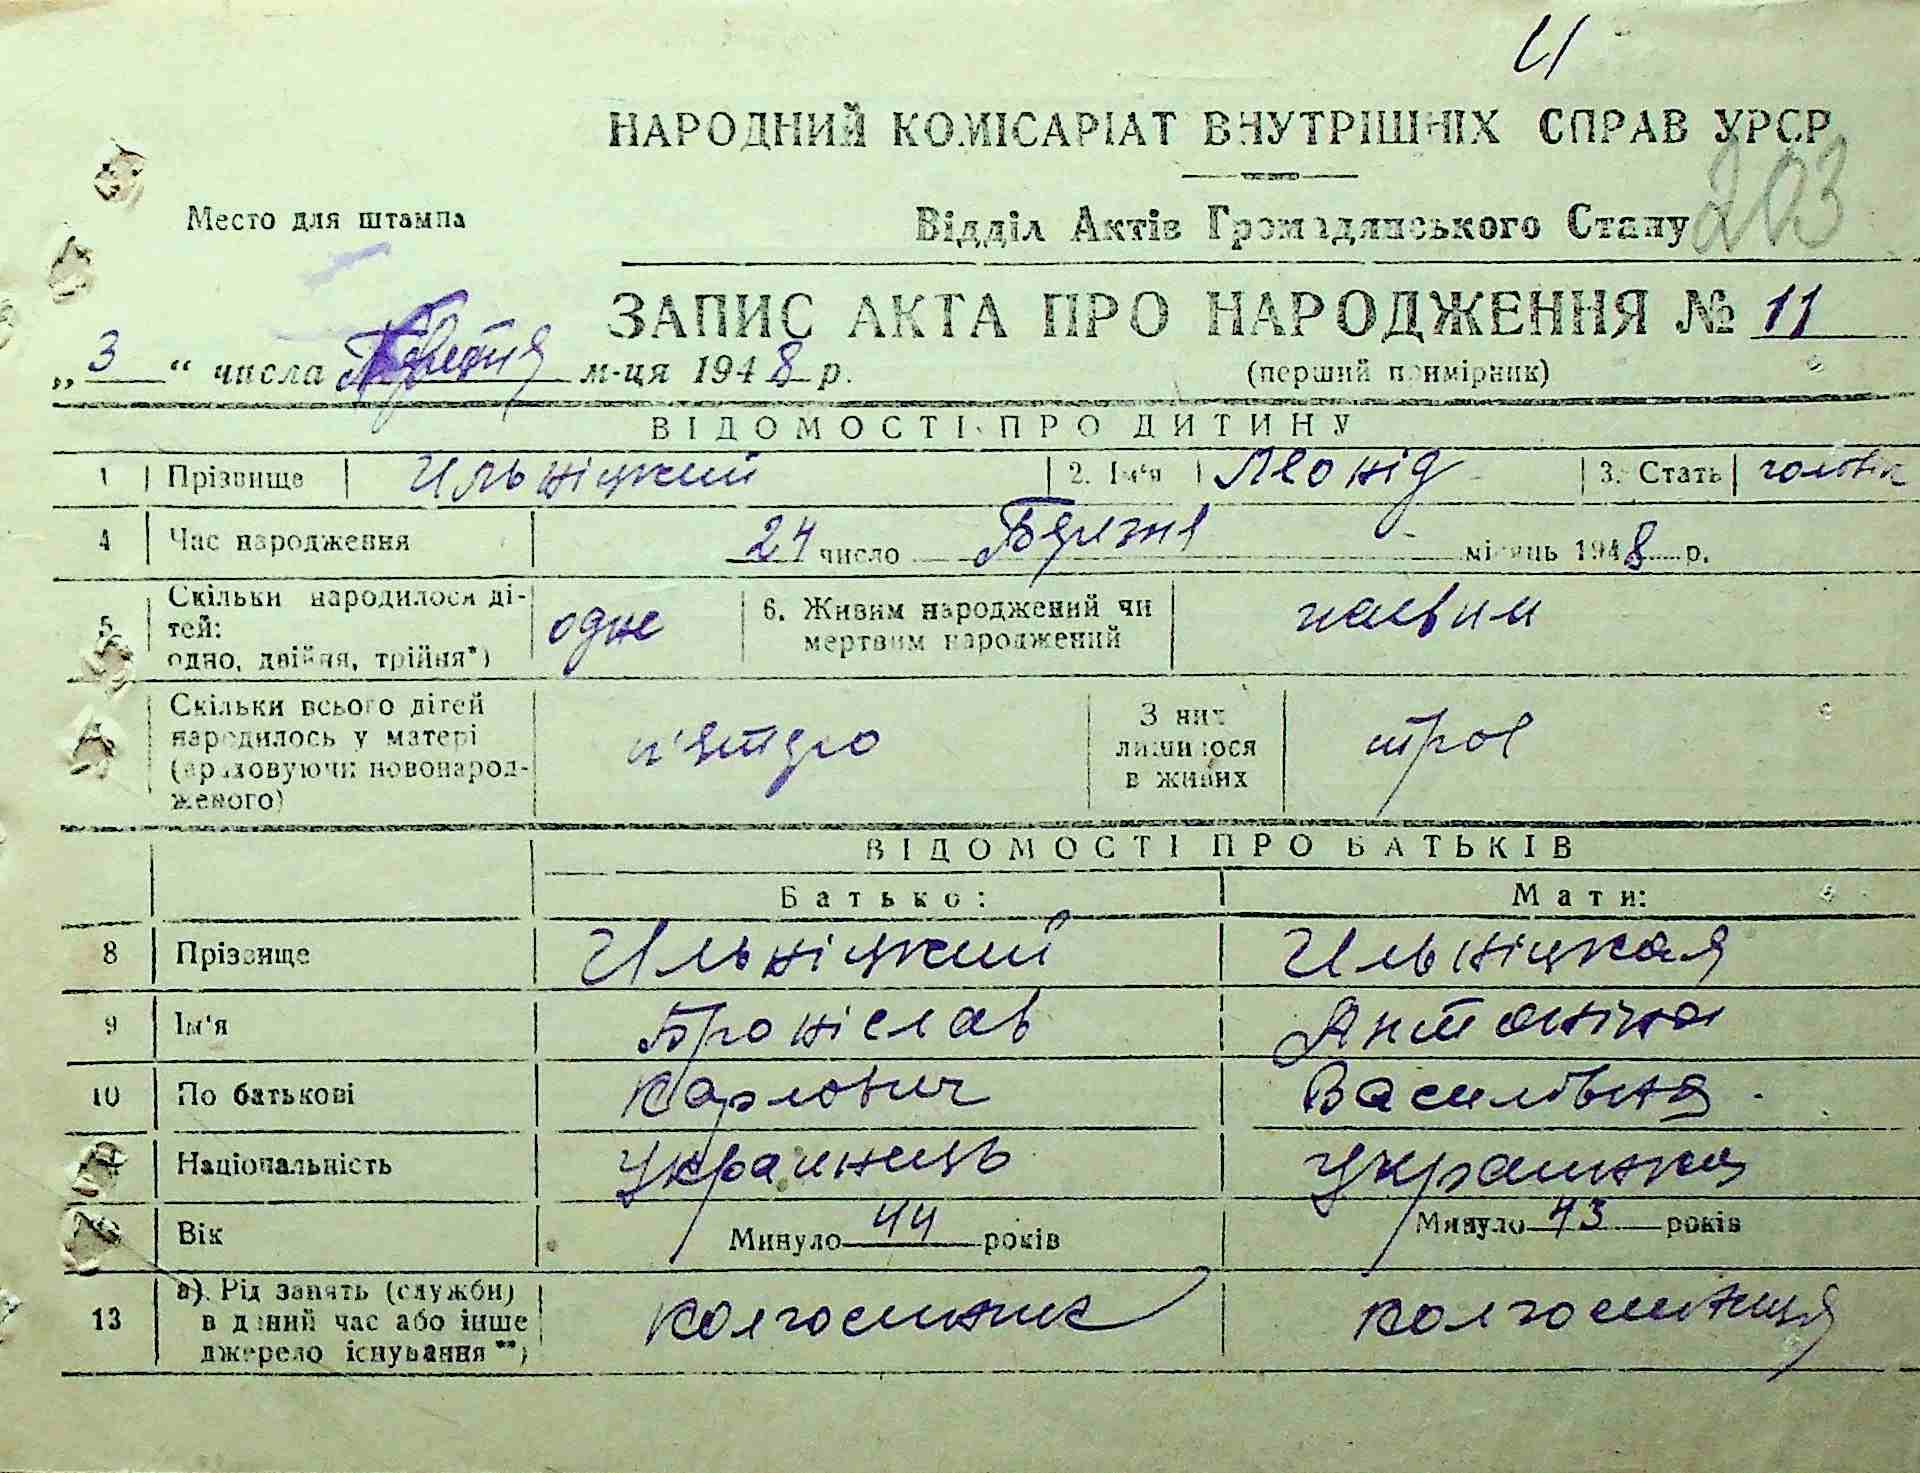 И
НАРОДНИЙ КОМІСАРІАТ ВНУТРІШНІХ СПРАВ УРСР
203
Место для штампа
Відділ Актів Громадянського Стану
ЗАПИС АКТА ПРО НАРОДЖЕННЯ № 11
„ 3 “ числа Квітня м-ця 1948 р.
(перший примірник)
ВІДОМОСТІ ПРО ДИТИНУ
1 Прізвище Ильніцкий 2. Ім'я Леонід 3. Стать
4 Час народження 24 число Березня місяць 1948 р.
5 Скільки народилося дітей: одно, двійня, трійня*) одне 6. Живим народжений чи мертвим народжений живим
Скільки всього дітей народилось у матері (враховуючи новонародженого) п'ятеро З них лишилося в живих троє
ВІДОМОСТІ ПРО БАТЬКІВ
Батько: Мати:
8 Прізвище Ильніцкий Ильніцкая
9 Ім'я Броніслав Антоніна
10 По батькові Карлович Васильвна
Національність Украинець Украинка
Вік Минуло 44 років Минуло 43 років
13 а). Рід занять (службн) в даний час або інше джерело існування **) колгоспник колгоспниця